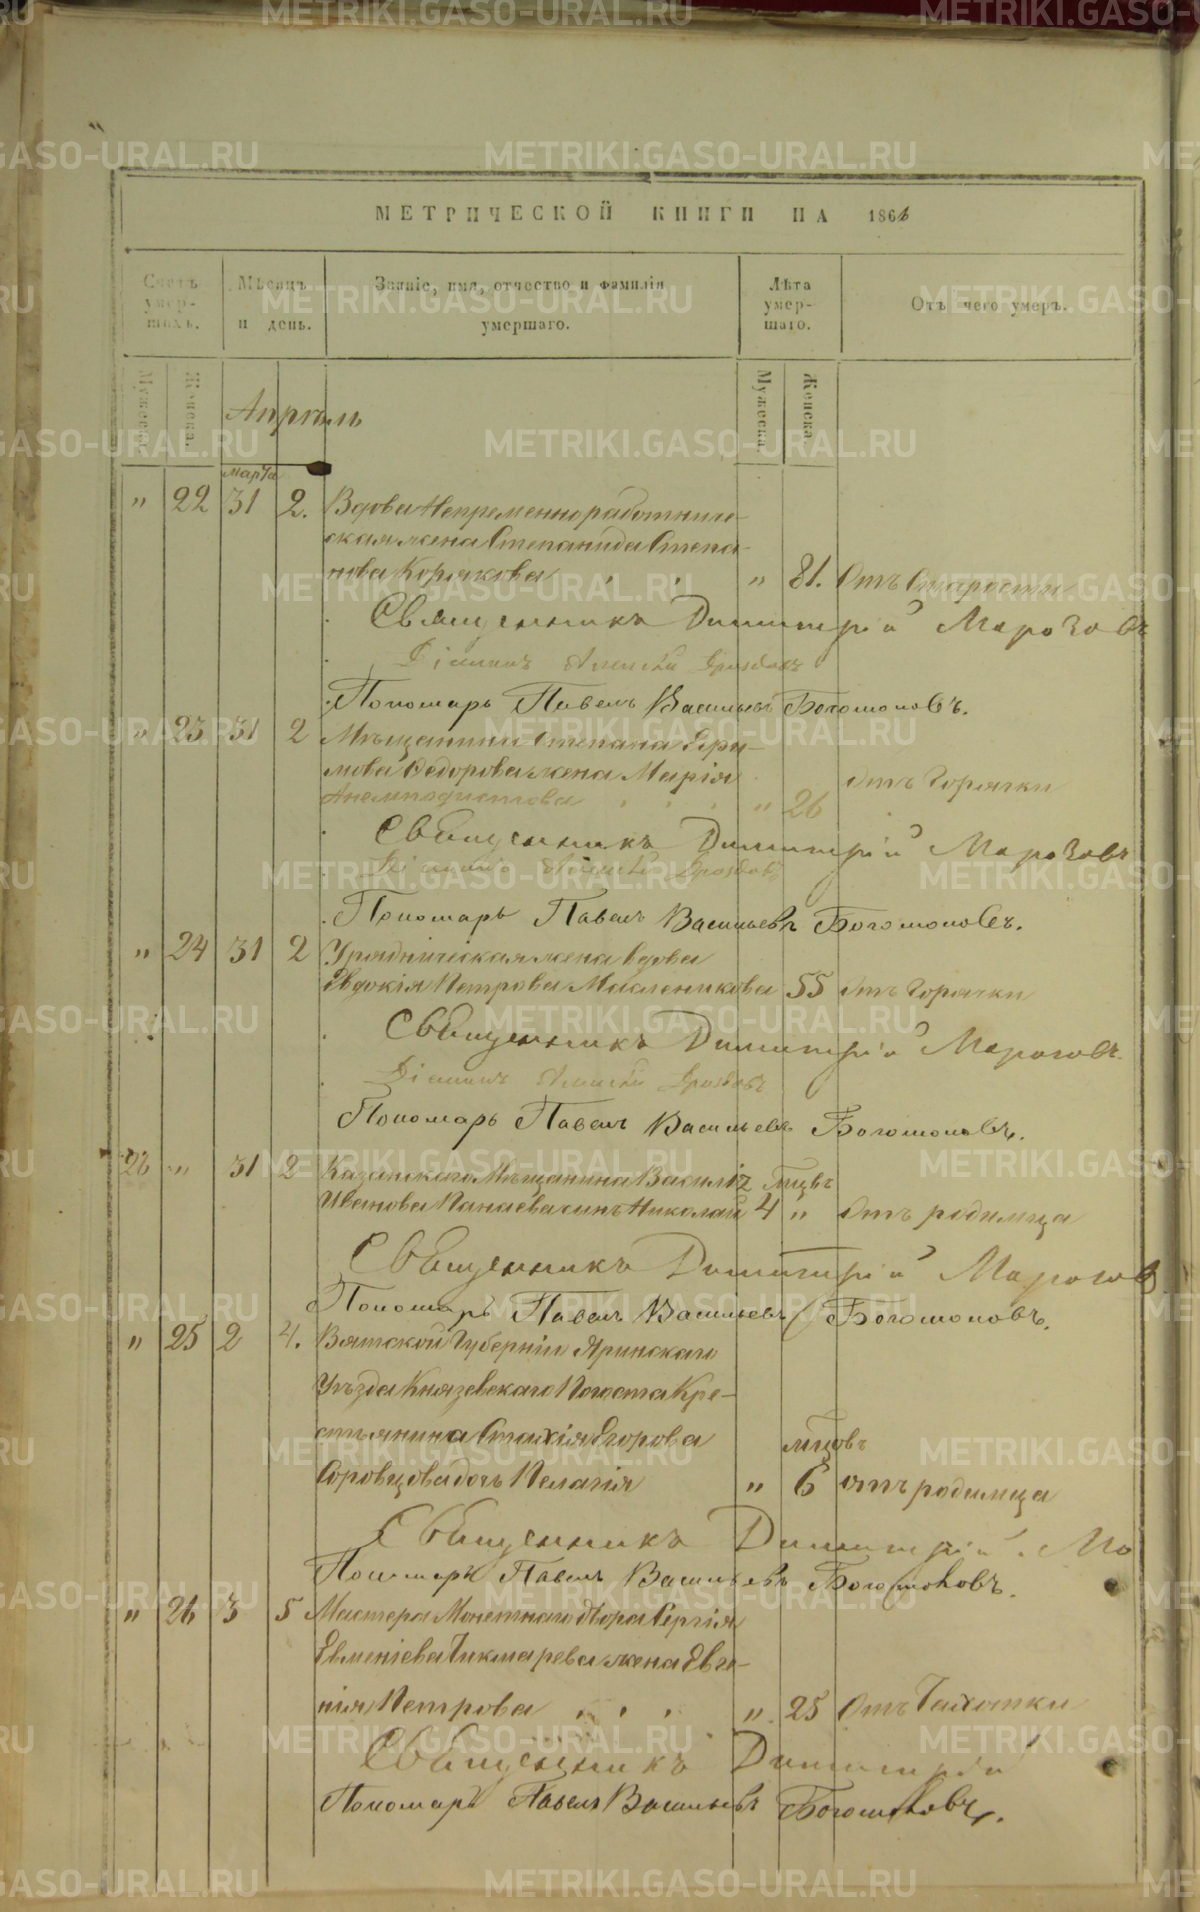 МЕТРИЧЕСКОЙ КНИГИ НА 186
Счетъ умершихъ.
Мѣсяцъ и день.
Званіе, имя, отчество и фамилія умершаго.
Лѣта умершаго.
Отъ чего умеръ.
Мужеска.
Женска.
Апрѣль
Мужеска.
Женска.
марта
" 22 31 2. Вдова Непременноработниче-
ская жена Степанида Степа-
нова Корякова " 81. Отъ Старости
Священникъ Димитрій
Діаконъ Алексѣй Дроздовъ
Пономарь Павелъ Васильевъ Богомоловъ.
" 23 31 2 Мѣщанина Степана
Федорова жена Марія
Анемподистова " 26 Отъ Горячки
Священникъ Димитрій
Діаконъ Алексѣй Дроздовъ
Пономарь Павелъ Васильевъ Богомоловъ.
" 24 31 2 Урядническая жена вдова
Евдокія Петрова Масленикова 55 Отъ Горячки
Священникъ Димитрій
Діаконъ Алексѣй Дроздовъ
Пономарь Павелъ Васильевъ Богомоловъ.
26 " 31 2 Казанскаго Мѣщанина Василія
Иванова Панаева сынъ Николай 4 " Отъ родимца
Священникъ Димитрій
Пономарь Павелъ Васильевъ Богомоловъ.
" 25 2 4. Вятской Губерніи Яранскаго
Уѣзда Князевскаго Погоста Кре-
стьянина Стахія Егорова
дочь Пелагія " 6 отъ родимца
Священникъ Димитрій
Пономарь Павелъ Васильевъ Богомоловъ.
" 26 3 5 Мастера Монетнаго двора Сергія
Евменіева Чикмарева жена Евге-
нія Петрова " 25 Отъ Чахотки
Священникъ Димитрій
Пономарь Павелъ Васильевъ Богомоловъ.
METRIKI.GASO-URAL.RU